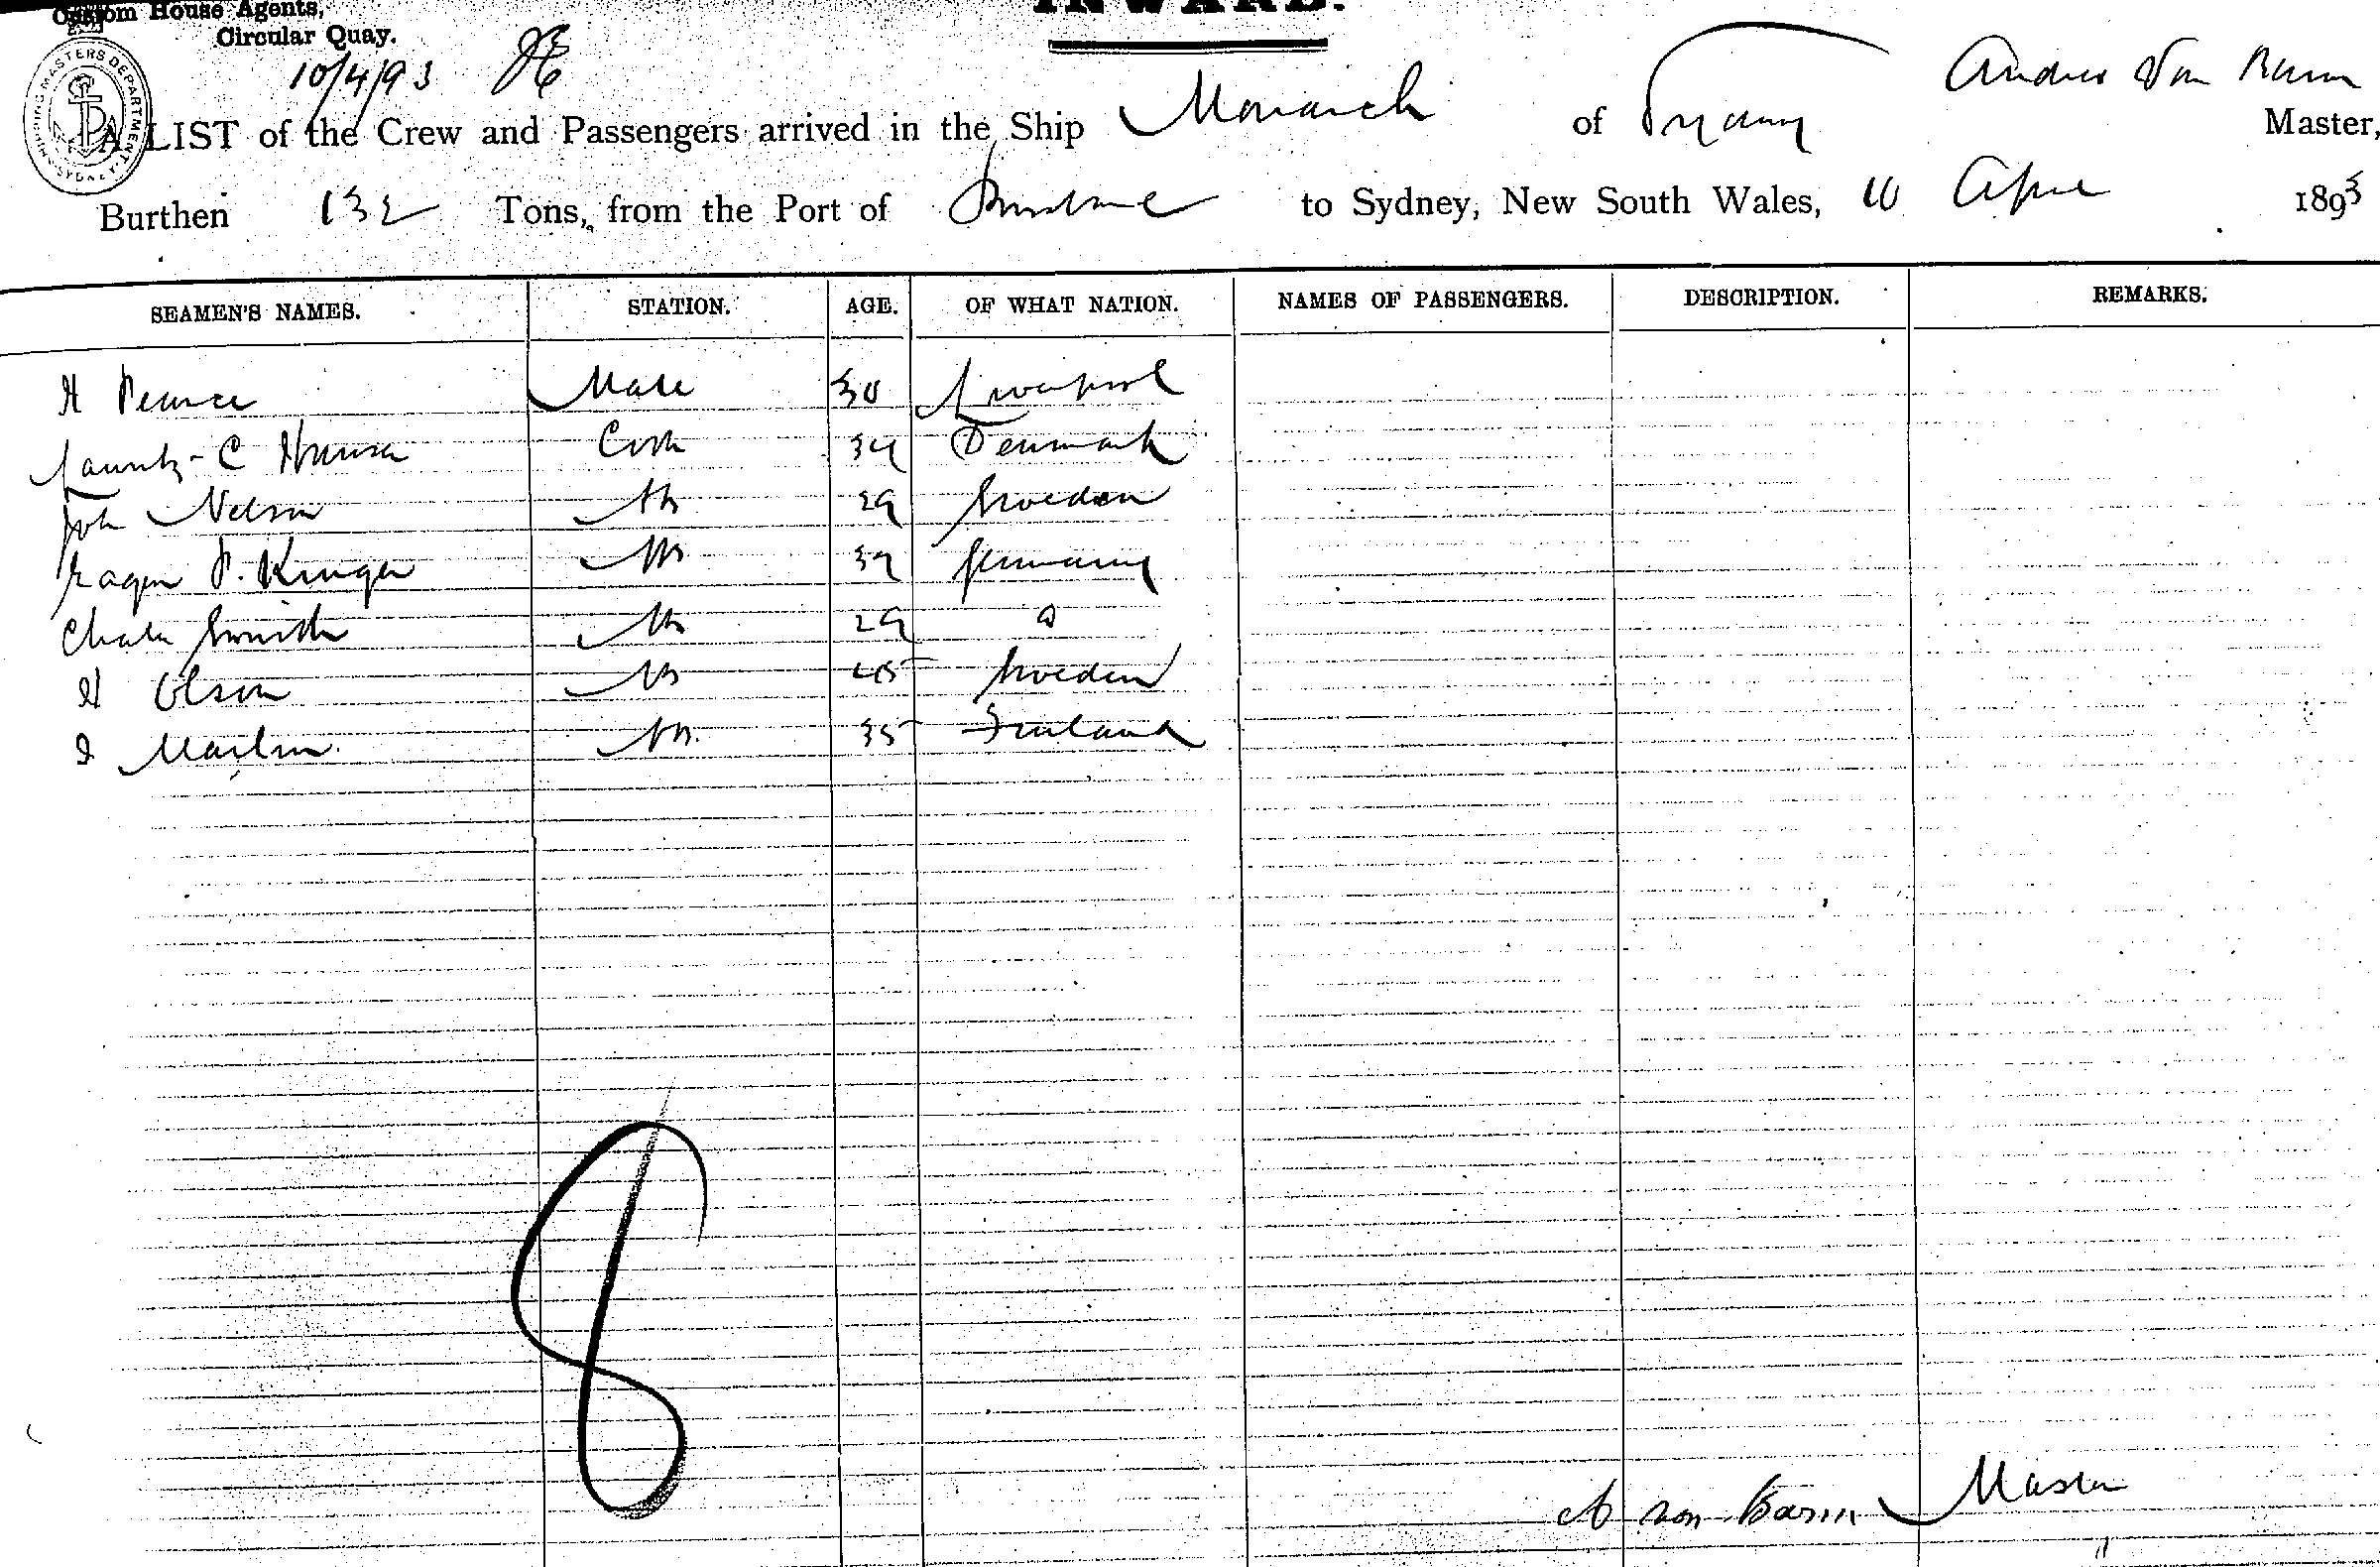 Custom House Agents,
Circular Quay.
INWARD.
10/4/93
SHIPPING MASTERS DEPARTMENT SYDNEY
Andrew Von Barm
A LIST of the Crew and Passengers arrived in the Ship Monarch of Sydney Master,
Burthen 132 Tons, from the Port of Brisbane to Sydney, New South Wales, 10 April 1893
SEAMEN'S NAMES. STATION. AGE. OF WHAT NATION. NAMES OF PASSENGERS. DESCRIPTION. REMARKS.
H Pearce Mate 30 Liverpool
Lauritz C Hansen Cook 34 Denmark
John Nelson AB 29 Sweden
P. Kruger AB 39 Germany
Charles Smith AB 29 D
H Olson AB 45 Sweden
I Martin AB 35 Finland
8
A von Barm Master